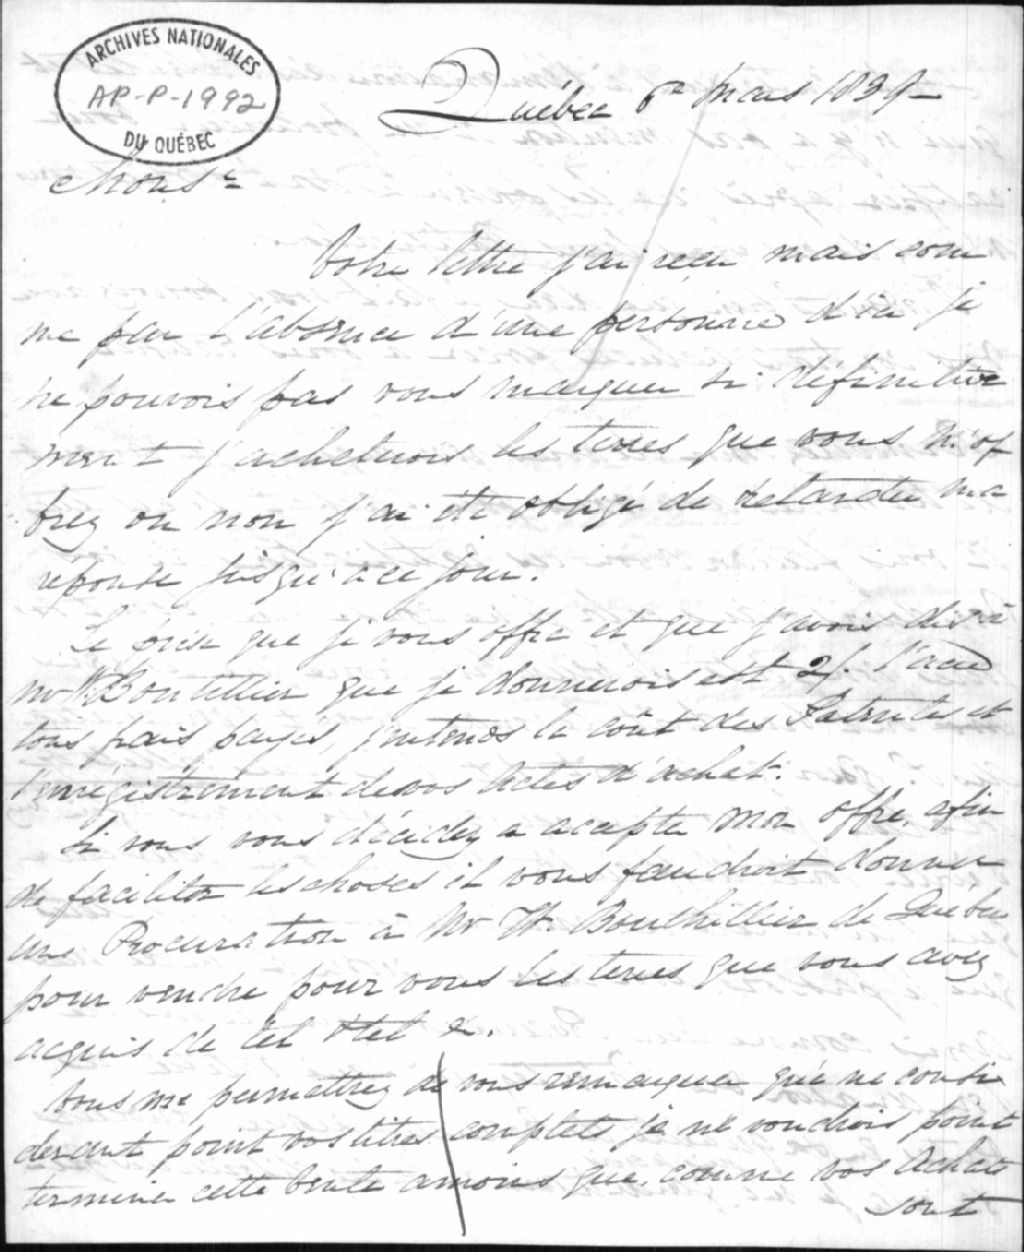 ARCHIVES NATIONALES
AP-P-1992
DU QUÉBEC
Québec 6 Mars 183
Monsr
Votre lettre j'ai reçu mais com
me par l'absence d'une personne d'ici je
ne pouvois pas vous marquer si definitive
ment j'acheterois les terres que vous m'of
frez ou non j'ai été obligé de retarder ma
réponse jusqu'a ce jour.
Le prix que je vous offre et que j'avois dit à
Mr W. Boutellier que je donnerois est 2/. l'acre
tous frais payés, j'entends le coût des Patentes et
l'enrégistrement de vos Actes d'achat.
Si vous vous décidez a accepter mon offre, afin
de faciliter les choses il vous faudroit donner
une Procuration à Mr W. Bouthillier de Québec
pour vendre pour vous les terres que vous avez
acquis de tel & tel &.
Vous me permettrez de vous remarquer que ne consi
derant point vos titres complets je ne voudrois point
terminer cette vente amoins que, comme vos Achats
sont